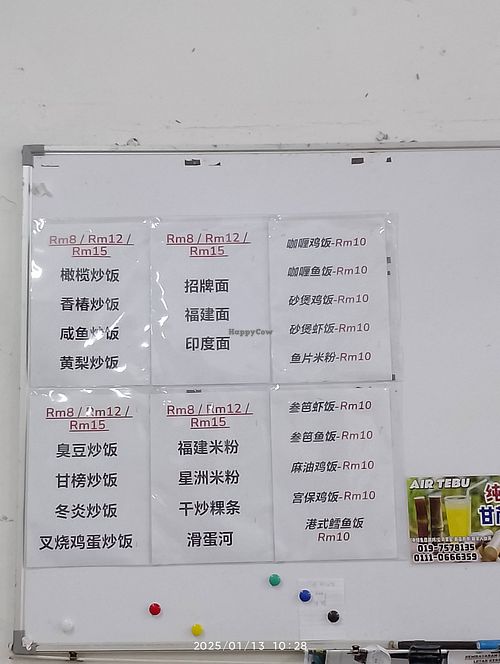 Rm8 / Rm12 /
Rm15
橄榄炒饭
香椿炒饭
咸鱼炒饭
黄梨炒饭
Rm8 / Rm12 /
Rm15
招牌面
福建面
印度面
咖喱鸡饭-Rm10
咖喱鱼饭-Rm10
砂煲鸡饭-Rm10
砂煲虾饭-Rm10
鱼片米粉-Rm10
HappyCow
Rm8 / Rm12 /
Rm15
臭豆炒饭
甘榜炒饭
冬炎炒饭
叉烧鸡蛋炒饭
Rm8 / Rm12 /
Rm15
福建米粉
星洲米粉
干炒粿条
滑蛋河
叁笆虾饭-Rm10
叁笆鱼饭-Rm10
麻油鸡饭-Rm10
宫保鸡饭-Rm10
港式鳕鱼饭
Rm10
AIR TEBU
019-7578135
0111-0666359
2025/01/13 10:28